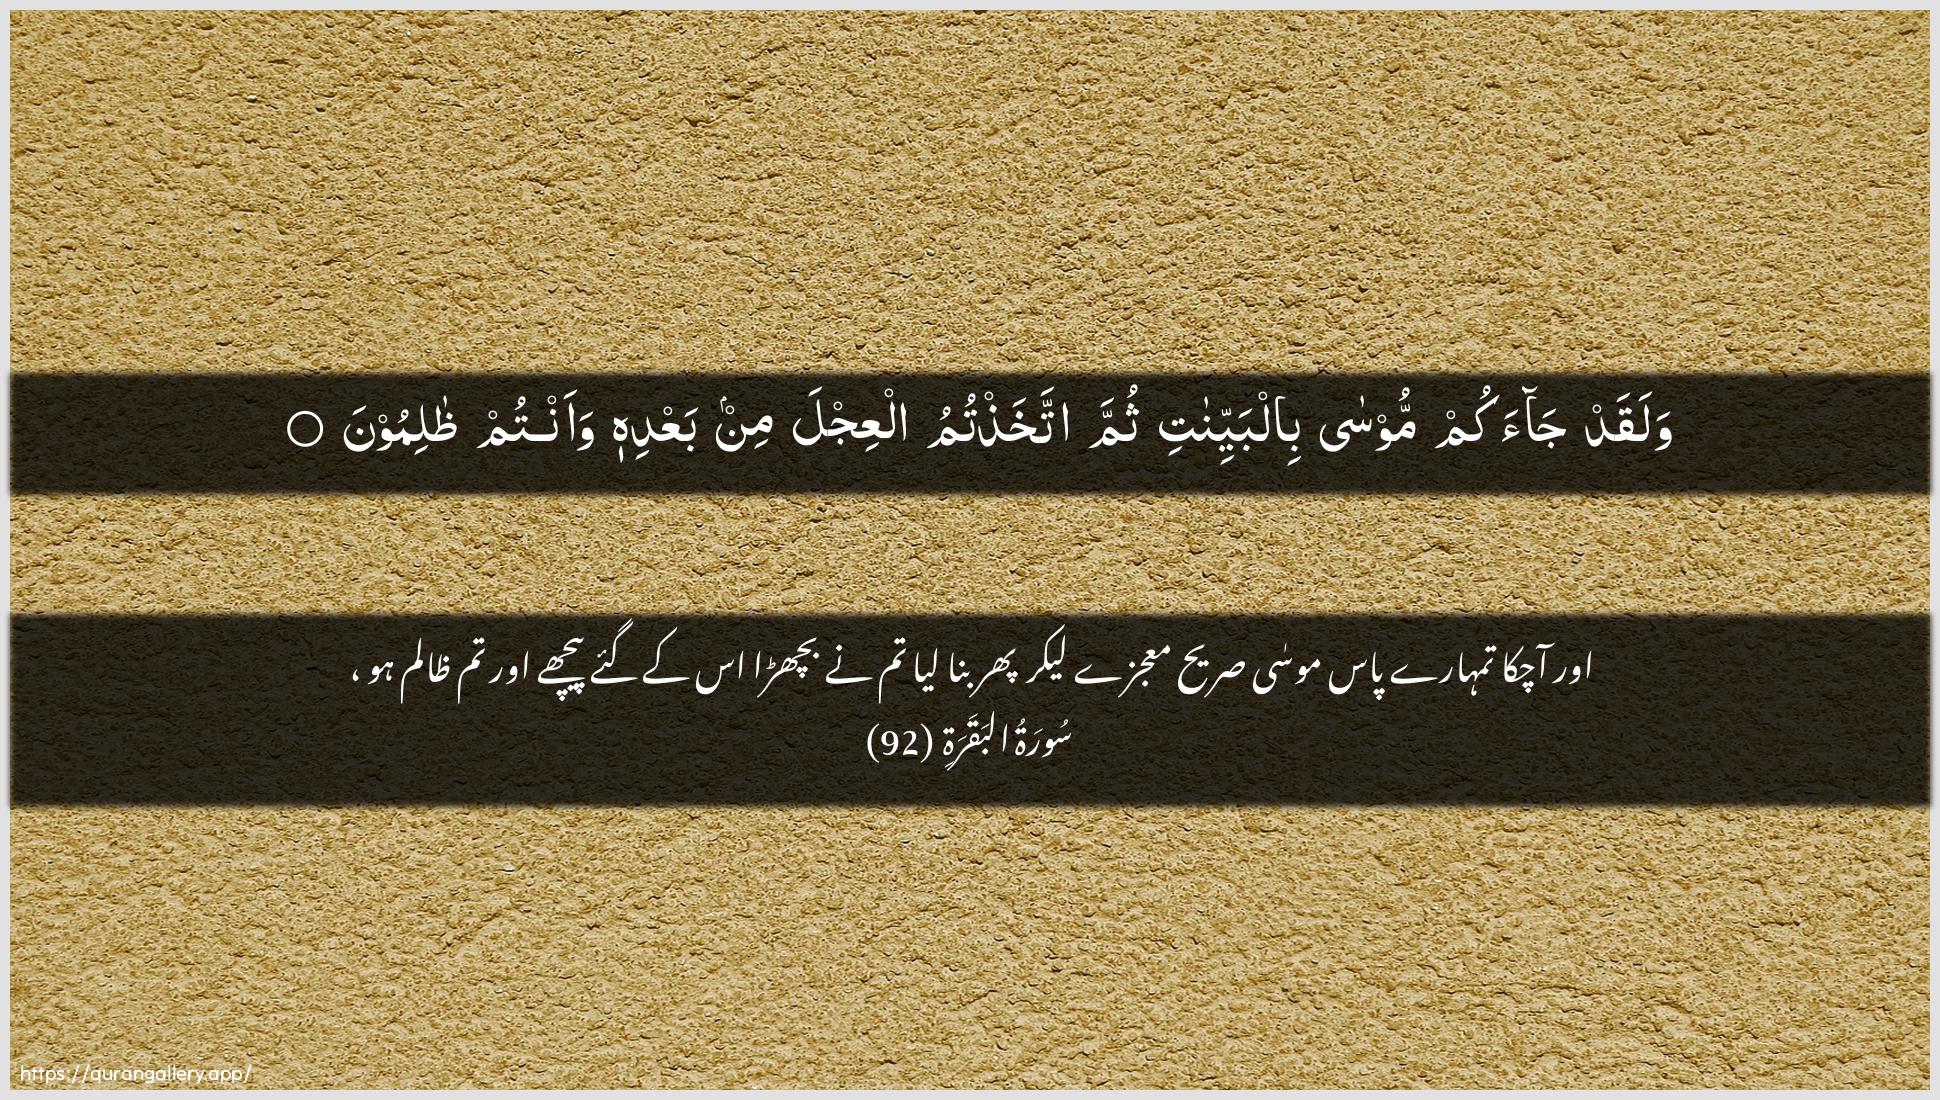 وَلَقَدْ جَآءَكُمْ مُّوْسٰى بِالْبَيِّنٰتِ ثُمَّ اتَّخَذْتُمُ الْعِجْلَ مِنْۢ بَعْدِهٖ وَاَنْتُمْ ظٰلِمُوْنَ ○
اور آچکا تمہارے پاس موسٰی صریح معجزے لیکر پھر بنا لیا تم نے بچھڑا اس کے گئے پیچھے اور تم ظالم ہو ،
سُورَۃُ البَقَرَۃِ (92)
https://qurangallery.app/